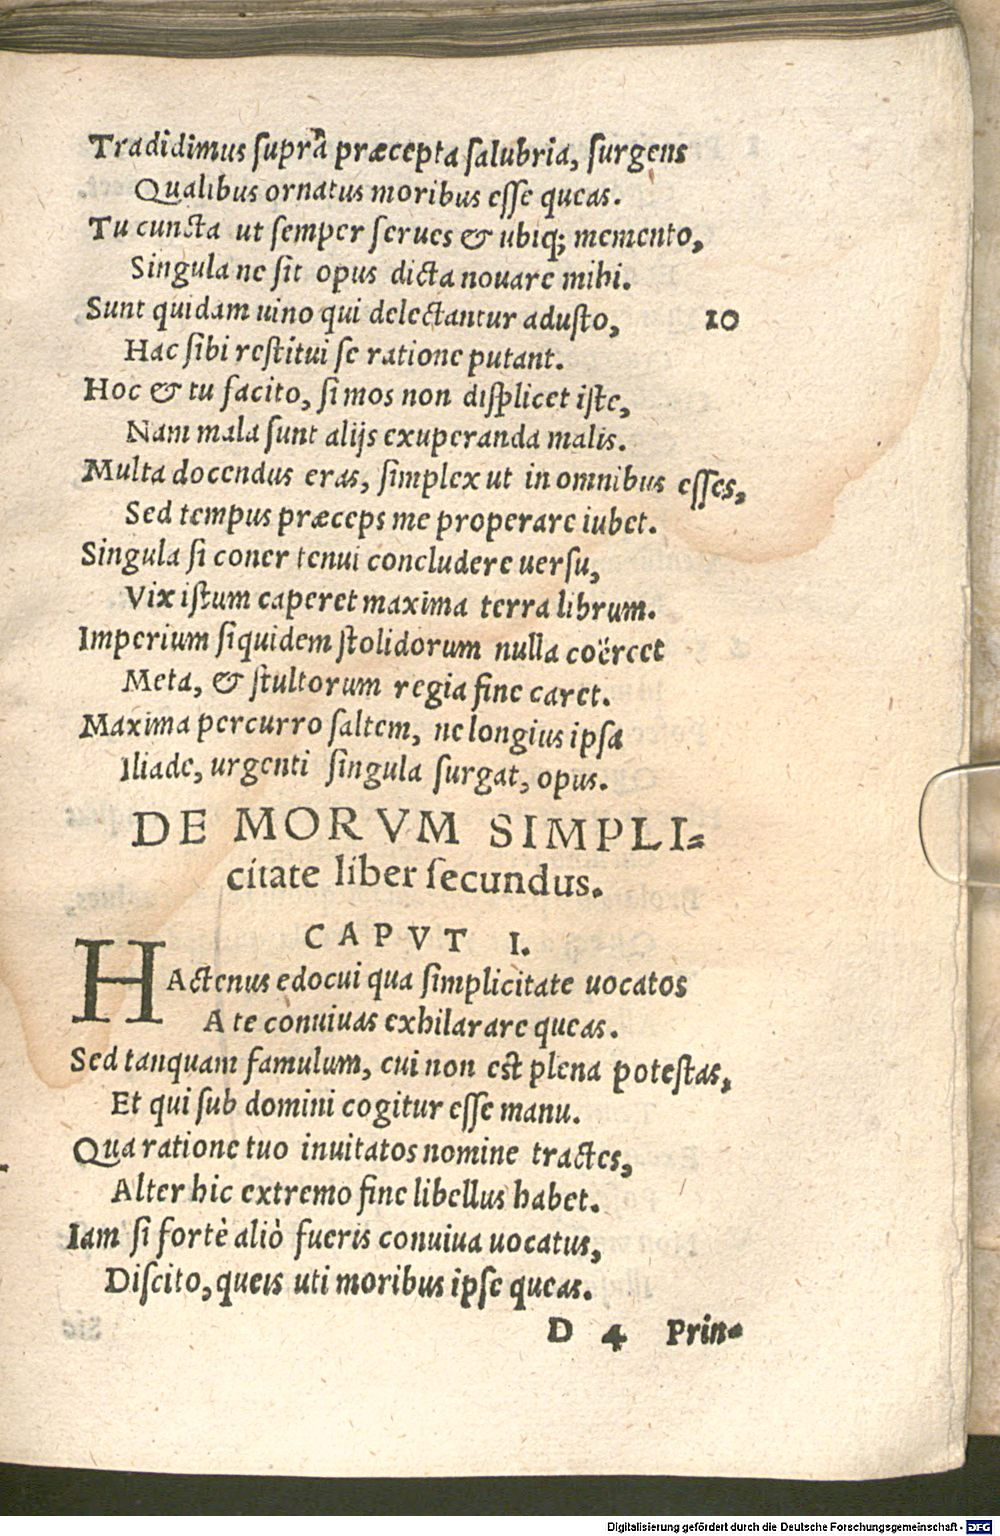 Tradidimus ſuprà præcepta ſalubria, ſurgens
Qualibus ornatus moribus eſſe queas.
Tu cuncta ut ſemper ſerues & ubiq; memento,
Singula ne ſit opus dicta nouare mihi.
Sunt quidam uino qui delectantur aduſto, 10
Hac ſibi reſtitui ſe ratione putant.
Hoc & tu facito, ſi mos non diſplicet iſte,
Nam mala ſunt alijs exuperanda malis.
Multa docendus eras, ſimplex ut in omnibus eſſes,
Sed tempus præceps me properare iubet.
Singula ſi coner tenui concludere uerſu,
Vix iſtum caperet maxima terra librum.
Imperium ſiquidem ſtolidorum nulla coërcet
Meta, & ſtultorum regia fine caret.
Maxima percurro ſaltem, ne longius ipſa
Iliade, urgenti ſingula ſurgat, opus.
DE MORVM SIMPLI=
citate liber ſecundus.
CAPVT I.
HActenus edocui qua ſimplicitate uocatos
A te conuiuas exhilarare queas.
Sed tanquam famulum, cui non eſt plena poteſtas,
Et qui ſub domini cogitur eſſe manu.
Qua ratione tuo inuitatos nomine tractes,
Alter hic extremo fine libellus habet.
Iam ſi fortè aliò fueris conuiua uocatus,
Diſcito, queis uti moribus ipſe queas.
D 4 Prin=
Digitalisierung gefördert durch die Deutsche Forschungsgemeinschaft - DFG